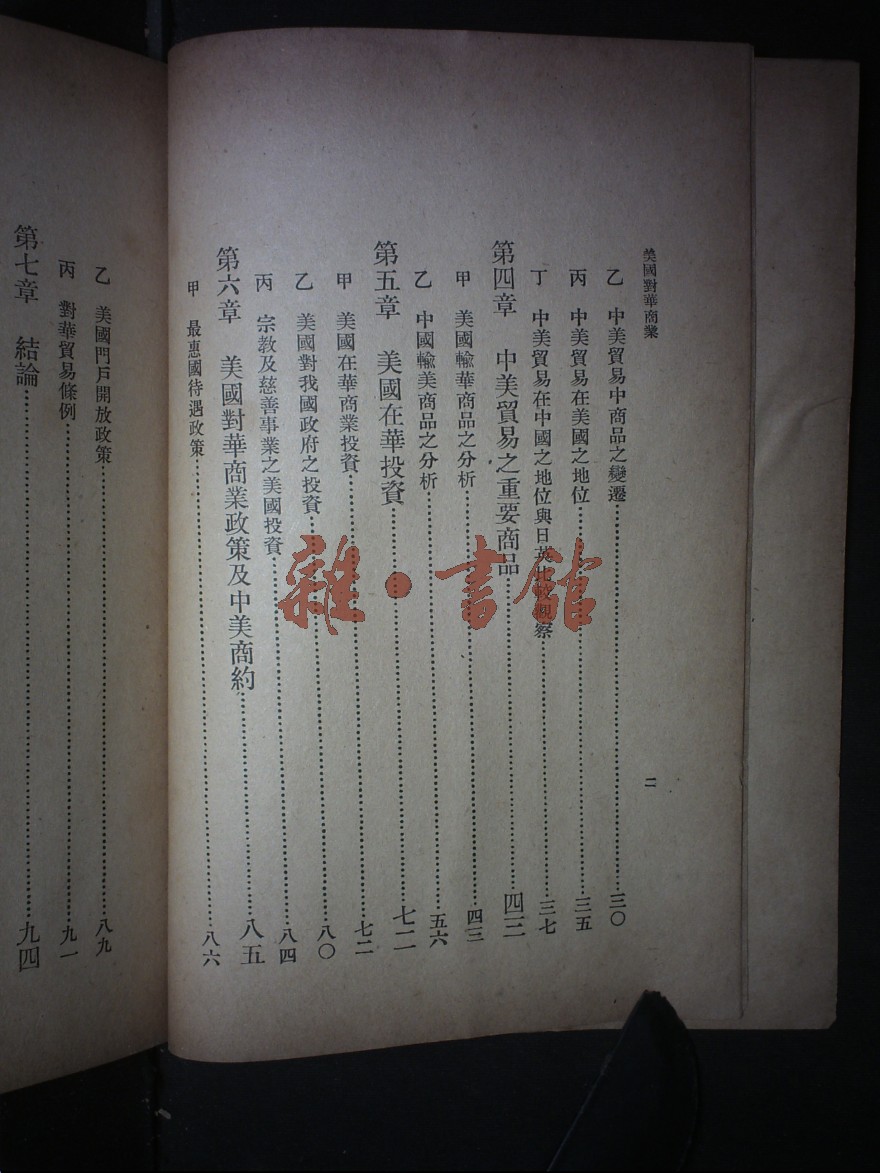 美國對華商業
二
乙　中美貿易中商品之變遷……三〇
丙　中美貿易在美國之地位……三五
丁　中美貿易在中國之地位與日英比較觀察……三七
第四章　中美貿易之重要商品……四三
甲　美國輸華商品之分析……四三
乙　中國輸美商品之分析……五六
第五章　美國在華投資……七二
甲　美國在華商業投資……七二
乙　美國對我國政府之投資……八〇
丙　宗教及慈善事業之美國投資……八四
第六章　美國對華商業政策及中美商約……八五
甲　最惠國待遇政策……八六
乙　美國門戶開放政策……八九
丙　對華貿易條例……九一
第七章　結論……九四
雜·書館